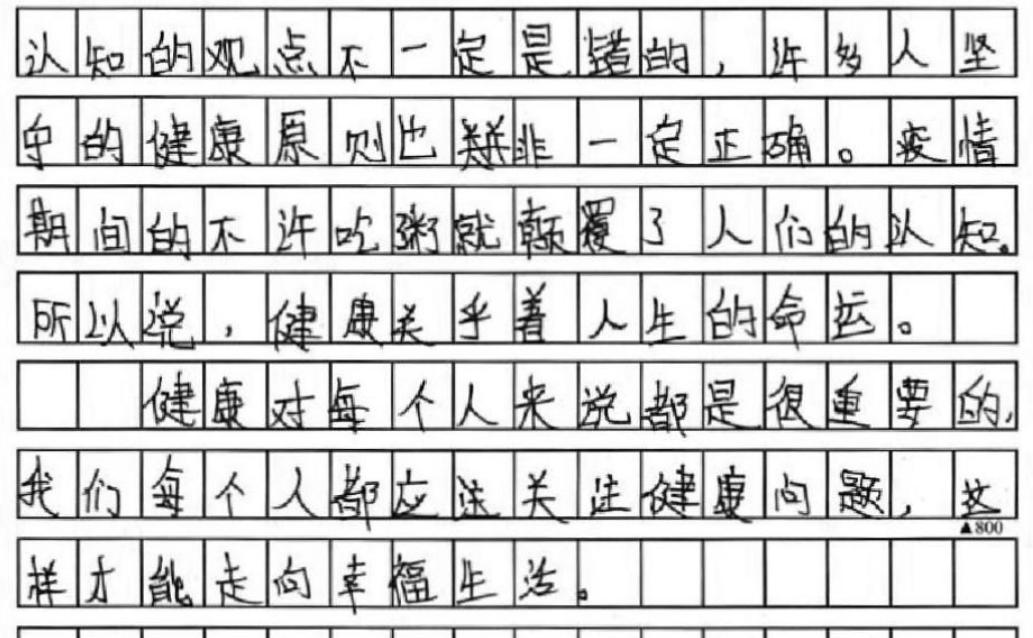 认知的观点不一定是错的，许多人坚
守的健康原则也并非一定正确。疫情
期间的不许吃粥就颠覆了人们的认知。
所以说，健康关乎着人生的命运。
健康对每个人来说都是很重要的，
我们每个人都应注关注健康问题，这
▲800
样才能走向幸福生活。